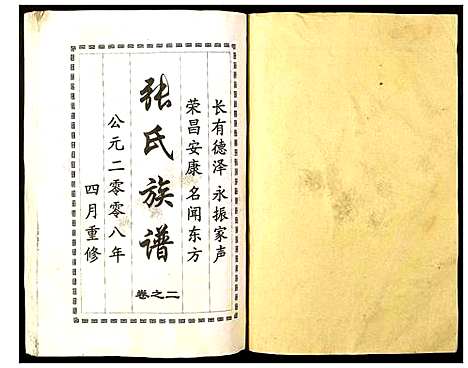 长有德泽 永振家声
荣昌安康 名闻东方
张氏族谱
卷之二
公元二零零八年
四月重修